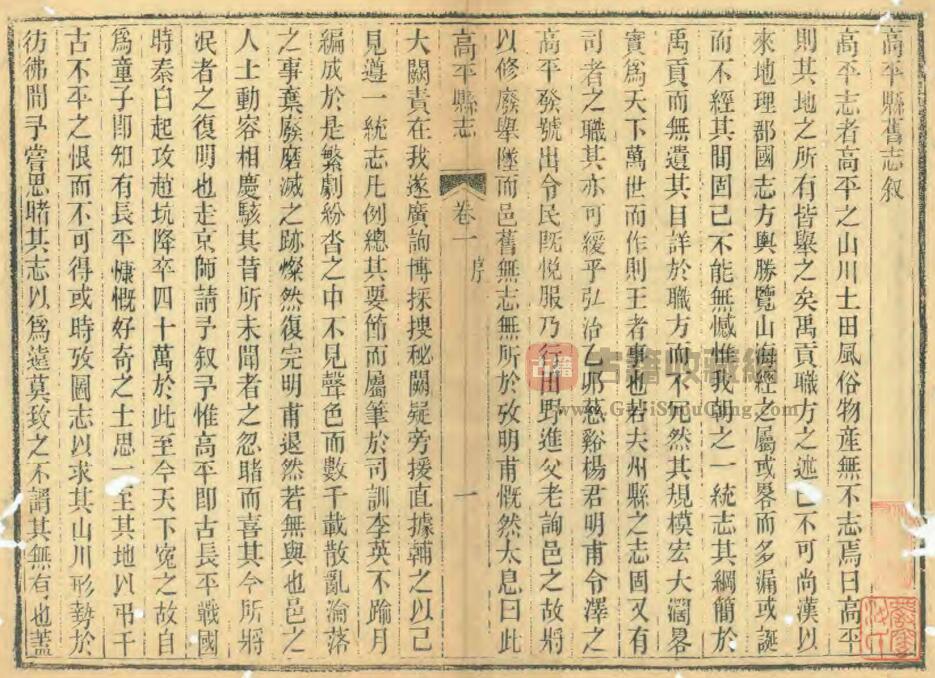 高平縣舊志叙
高平志者高平之山川土田風俗物産無不志焉曰高平
則其地之所有皆舉之矣禹貢職方之述已不可尚漢以
來地理郡國志方輿勝覽山海經之屬或畧而多漏或誕
而不經其間固已不能無憾惟我朝之一統志其綱簡於
禹貢而無遺其目詳於職方而不冗然其規模宏大濶畧
實爲天下萬世而作則王者事也若夫州縣之志固又有
司者之職其亦可緩乎弘治乙夘慈谿楊君明甫令澤之
高平發號出令民旣悅服乃行田野進父老詢邑之故將
以修廢舉墜而邑舊無志無所於攷明甫慨然太息曰此
高平縣志 卷一 序 一
大闕責在我遂廣詢博採搜秘闕疑旁援直據輔之以已
見遵一統志凡例總其要節而屬筆於司訓李英不踰月
編成於是繁劇紛沓之中不見聲色而數千載散亂淪落
之事棄廢磨滅之跡燦然復完明甫退然若無與也邑之
人士動容相慶駭其昔所未聞者之忽睹而喜其今所將
泯者之復明也走京師請予叙予惟高平即古長平戰國
時秦白起攻趙坑降卒四十萬於此至今天下寃之故自
爲童子即知有長平慷慨好奇之士思一至其地以弔千
古不平之恨而不可得或時攷圖志以求其山川形勢於
彷彿間予嘗思睹其志以爲遠莫致之不謂其無有也蓋
古籍
古籍收藏網
www.GujiShouCang.com